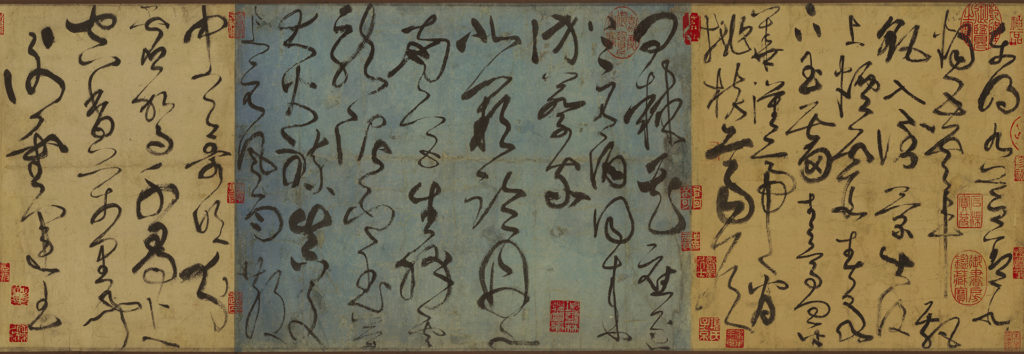 東明九芝蓋北
燭五雲車飄
颻入倒景出沒
上煙霞春泉
下玉霤青鳥向金
華漢帝看
桃核齊侯
問棗花應逐
上元酒同來
訪蔡家
北闕臨丹水
南宮生絳雲
龍泥印玉簡
大火煉真文
上元風雨散
中天哥吹分
虛駕千尋上
空香萬里聞
謝靈運王